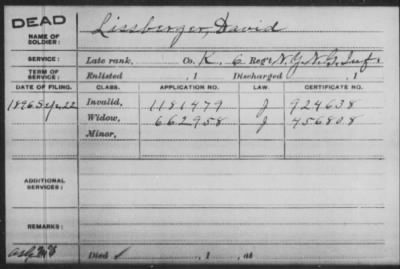 DEAD
NAME OF SOLDIER: Lissberger, David
SERVICE: Late rank, Co. K. 6 Reg't N.Y.N.G. Inf.
TERM OF SERVICE: Enlisted , 1 Discharged , 1
DATE OF FILING. CLASS. APPLICATION NO. LAW. CERTIFICATE NO.
1896 22 Invalid, 1181479 J 924638
Widow, 662958 J 456808
Minor,
ADDITIONAL SERVICES:
REMARKS:
Died , 1 , at